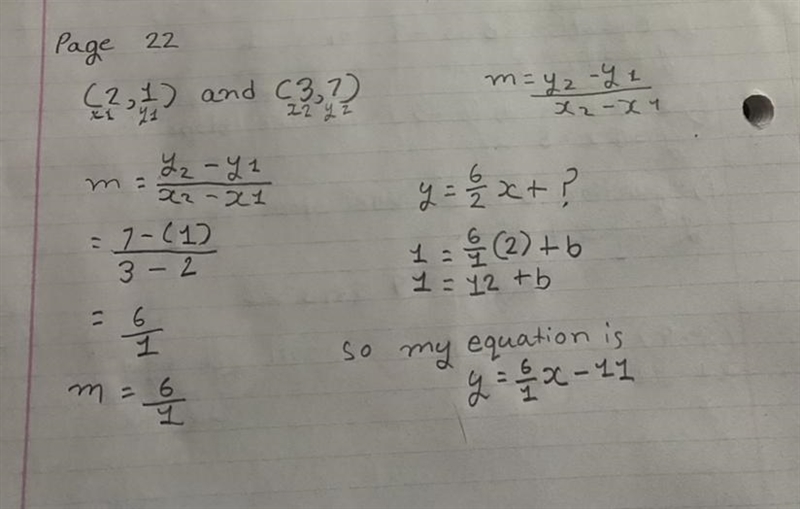 Page 22
(2,1) and (3,7)
x1 y1 x2 y2
m = y2 - y1 / x2 - x1
m = y2 - y1 / x2 - x1
= 7 - (1) / 3 - 2
= 6/1
m = 6/1
y = 6/2 x + ?
1 = 6/1 (2) + b
1 = 12 + b
so my equation is
y = 6/1 x - 11